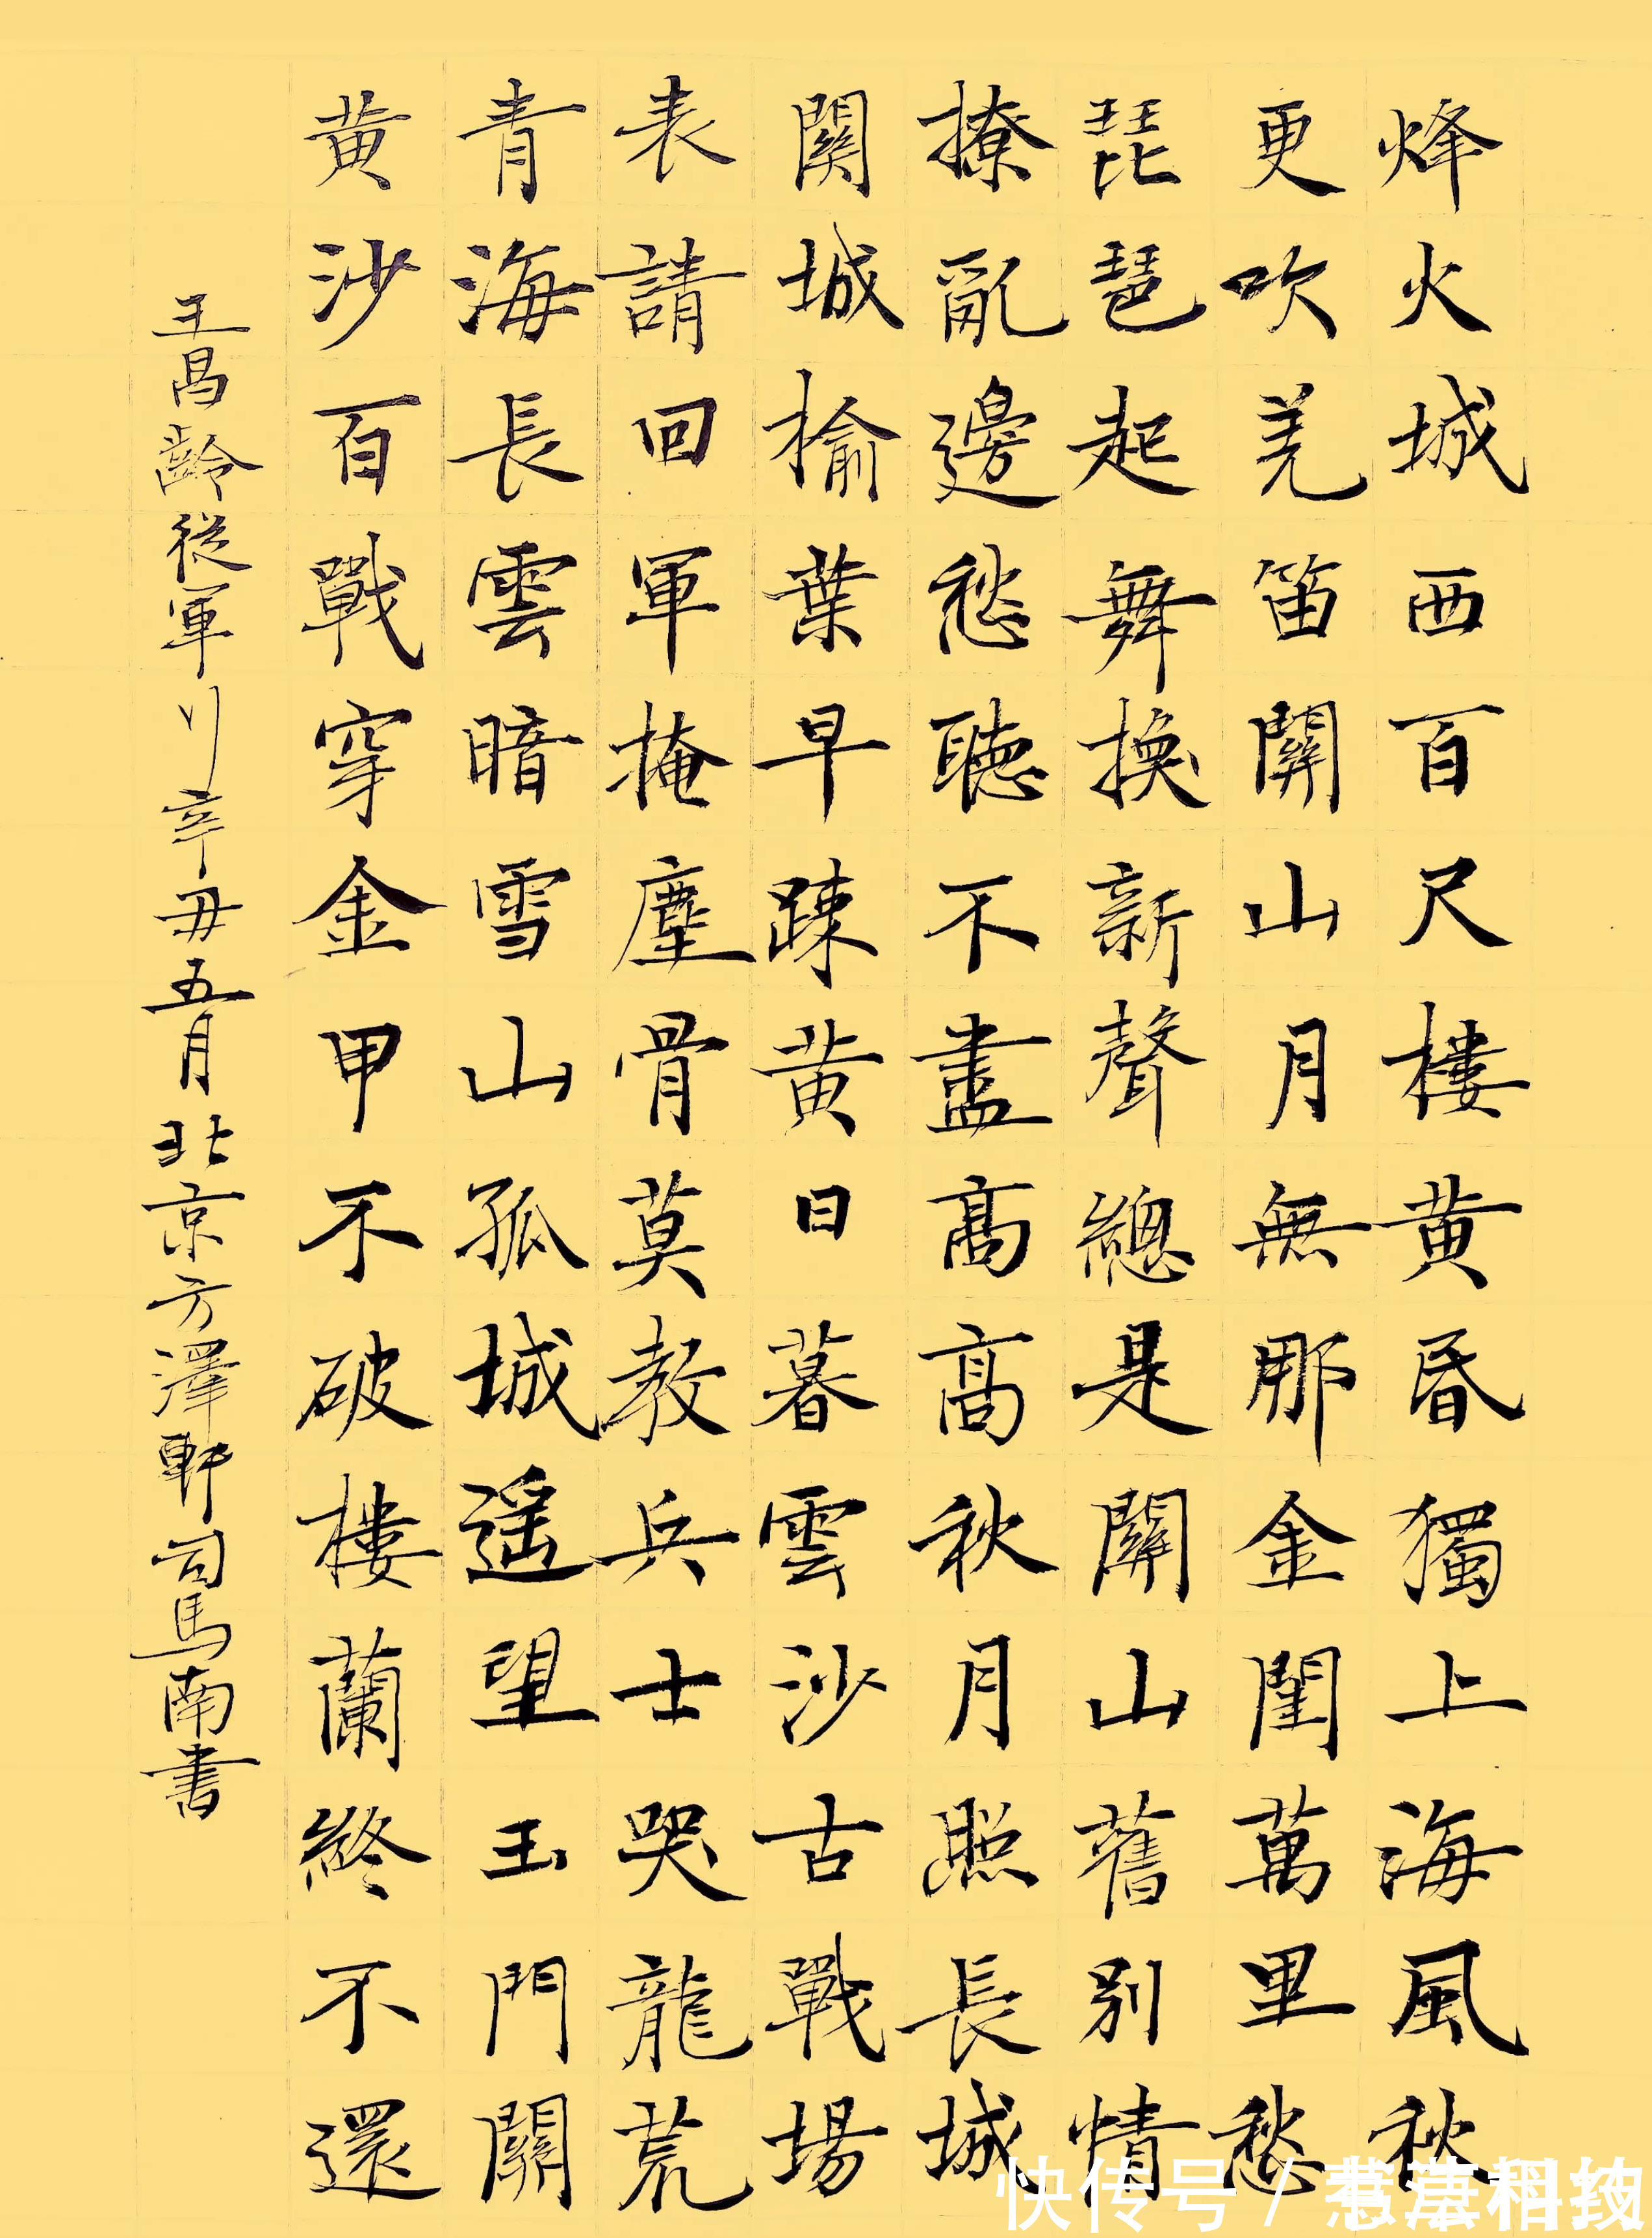 烽火城西百尺樓黄昏獨上海風秋
更吹羌笛關山月無那金閨萬里愁
琵琶起舞換新聲總是關山舊别情
撩亂邊愁聽不盡高高秋月照長城
關城榆葉早踈黄日暮雲沙古戰場
表請回軍掩塵骨莫教兵士哭龍荒
青海長雲暗雪山孤城遥望玉門關
黄沙百戰穿金甲不破樓蘭終不還
王昌齡從軍行辛丑五月北京方澤軒司馬南書
快传号/